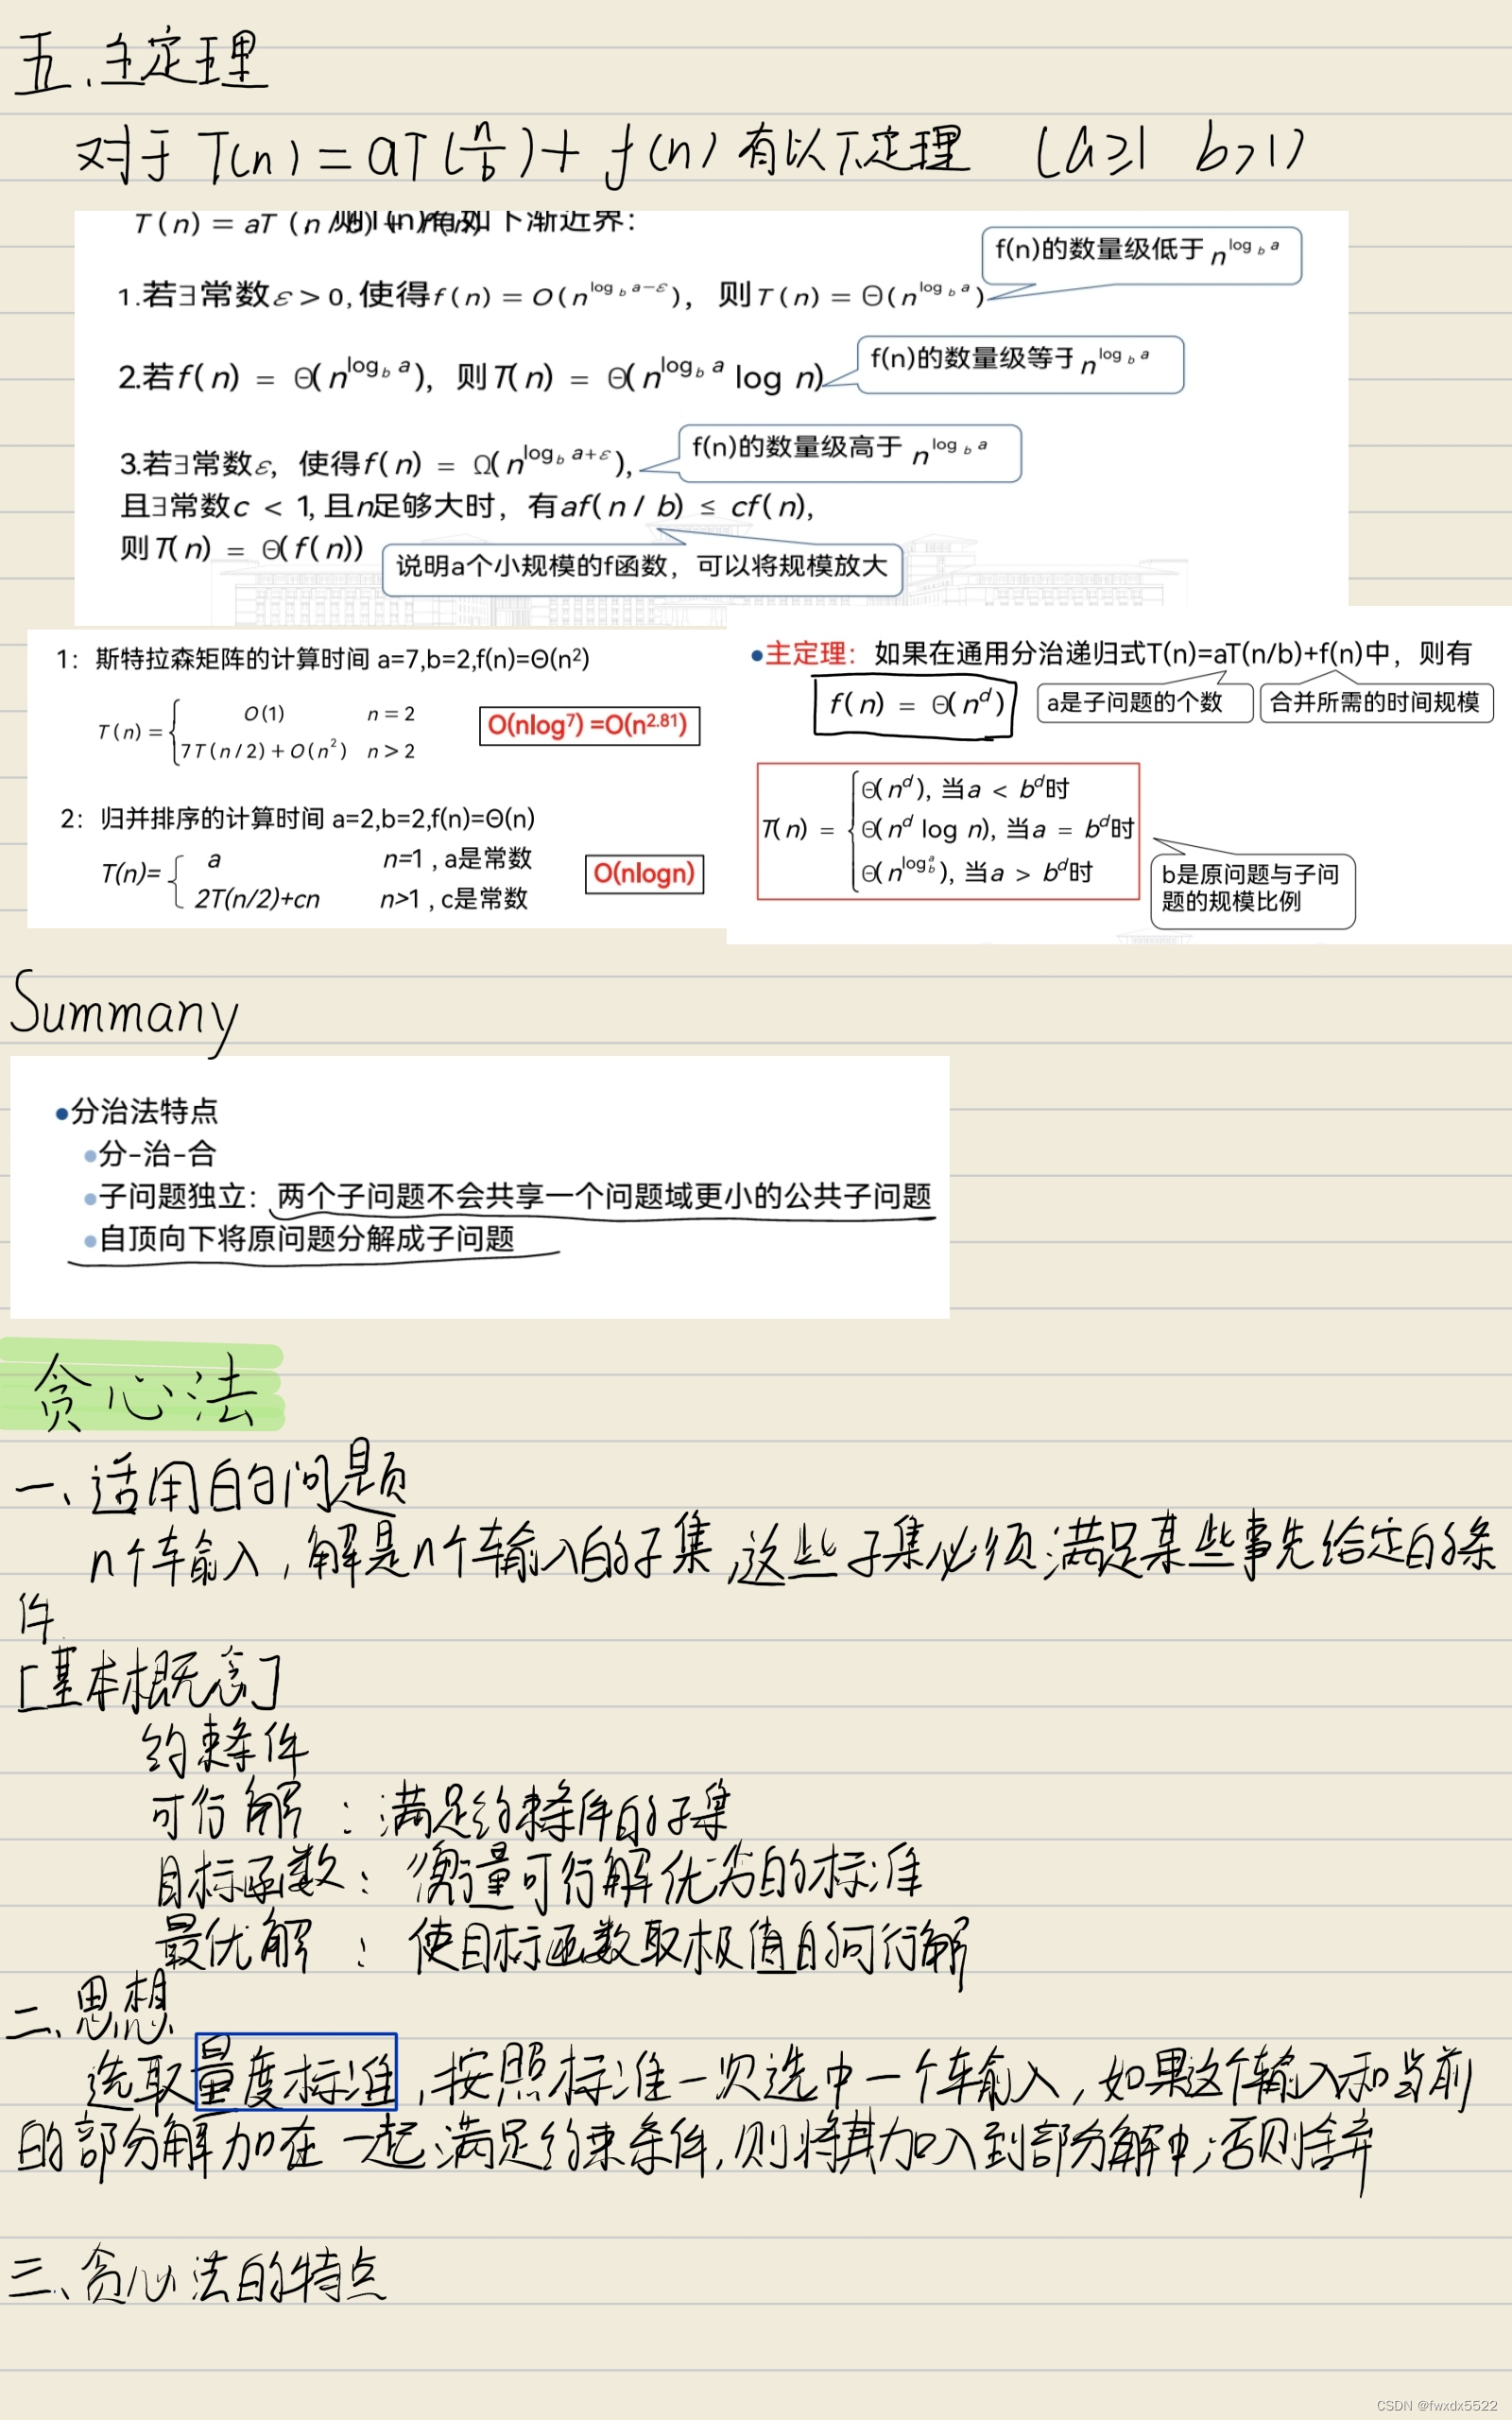 五、主定理
对于 T(n) = aT(n/b) + f(n) 有以下定理 (a≥1 b>1)
T(n) = aT(n/b)+f(n) 则T(n)有如下渐近界：
f(n)的数量级低于 n^{log_b a}
1.若∃常数ε > 0, 使得f(n) = O(n^{log_b a-ε}), 则T(n) = Θ(n^{log_b a})
2.若f(n) = Θ(n^{log_b a}), 则T(n) = Θ(n^{log_b a} log n)
f(n)的数量级等于 n^{log_b a}
3.若∃常数ε, 使得f(n) = Ω(n^{log_b a+ε}),
f(n)的数量级高于 n^{log_b a}
且∃常数c < 1, 且n足够大时，有af(n / b) ≤ cf(n),
则T(n) = Θ(f(n))
说明a个小规模的f函数，可以将规模放大
1：斯特拉森矩阵的计算时间 a=7,b=2,f(n)=Θ(n²)
T(n) = { O(1) n = 2
7T(n/2)+O(n²) n > 2
O(nlog⁷) =O(n^{2.81})
2：归并排序的计算时间 a=2,b=2,f(n)=Θ(n)
T(n)= { a n=1 , a是常数
2T(n/2)+cn n>1 , c是常数
O(nlogn)
•主定理：如果在通用分治递归式T(n)=aT(n/b)+f(n)中，则有
f(n) = Θ(n^d)
a是子问题的个数
合并所需的时间规模
T(n) = { Θ(n^d), 当a < b^d时
Θ(n^d log n), 当a = b^d时
Θ(n^{log_b^a}), 当a > b^d时
b是原问题与子问
题的规模比例
Summany
•分治法特点
•分-治-合
•子问题独立：两个子问题不会共享一个问题域更小的公共子问题
•自顶向下将原问题分解成子问题
贪心法
一、适用的问题
n个输入，解是n个输入的子集,这些子集必须满足某些事先给定的条
件.
[基本概念]
约束条件
可行解：满足约束条件的子集
目标函数：衡量可行解优劣的标准
最优解：使目标函数取极值的可行解
二、思想
选取量度标准,按照标准一次选中一个输入,如果这个输入和当前
的部分解加在一起满足约束条件,则将其加入到部分解中,否则舍弃
三、贪心法的特点
CSDN @fwxdx5522